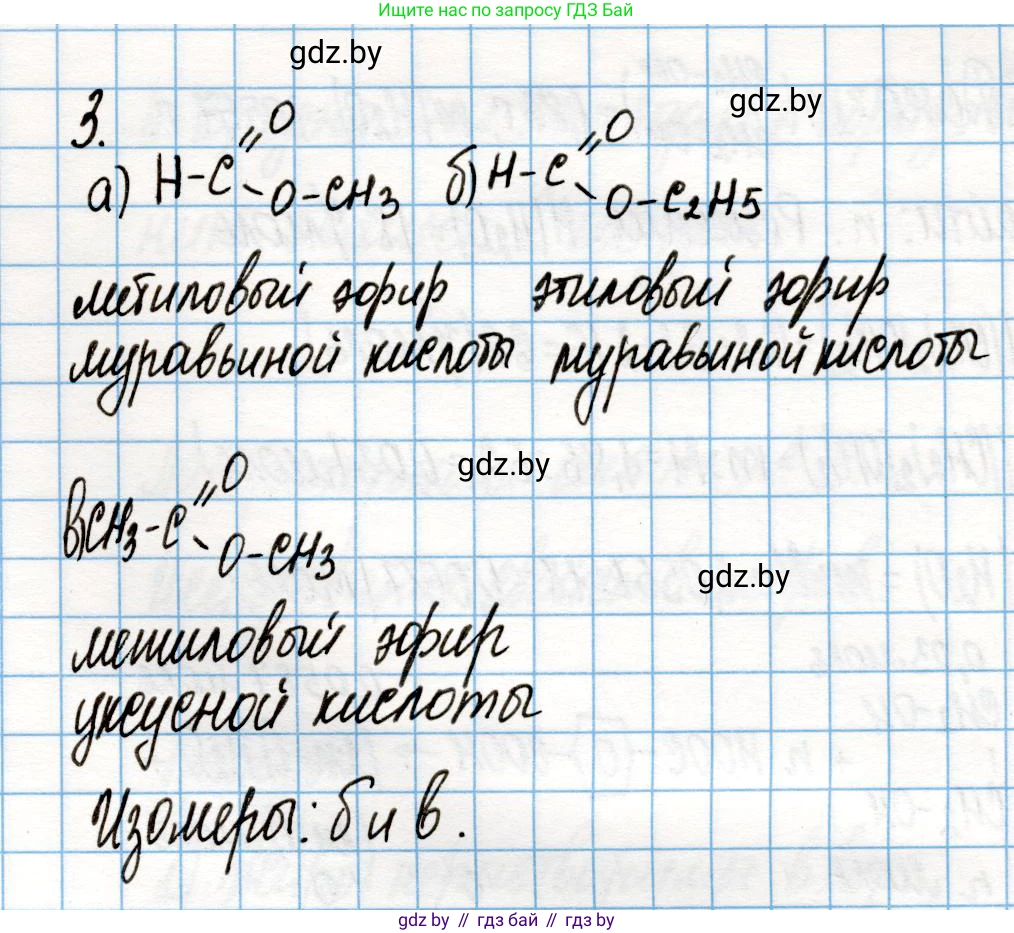 Ищите нас по запросу ГДЗ Бай
gdz.by
gdz.by
3.
O O
а) H-C б) H-C
O-CH3 O-C2H5
метиловый эфир этиловый эфир
муравьиной кислоты муравьиной кислоты
gdz.by
O
в) CH3-C
O-CH3
gdz.by
метиловый эфир
уксусной кислоты
Изомеры: б и в.
gdz.by // гдз бай // гдз by